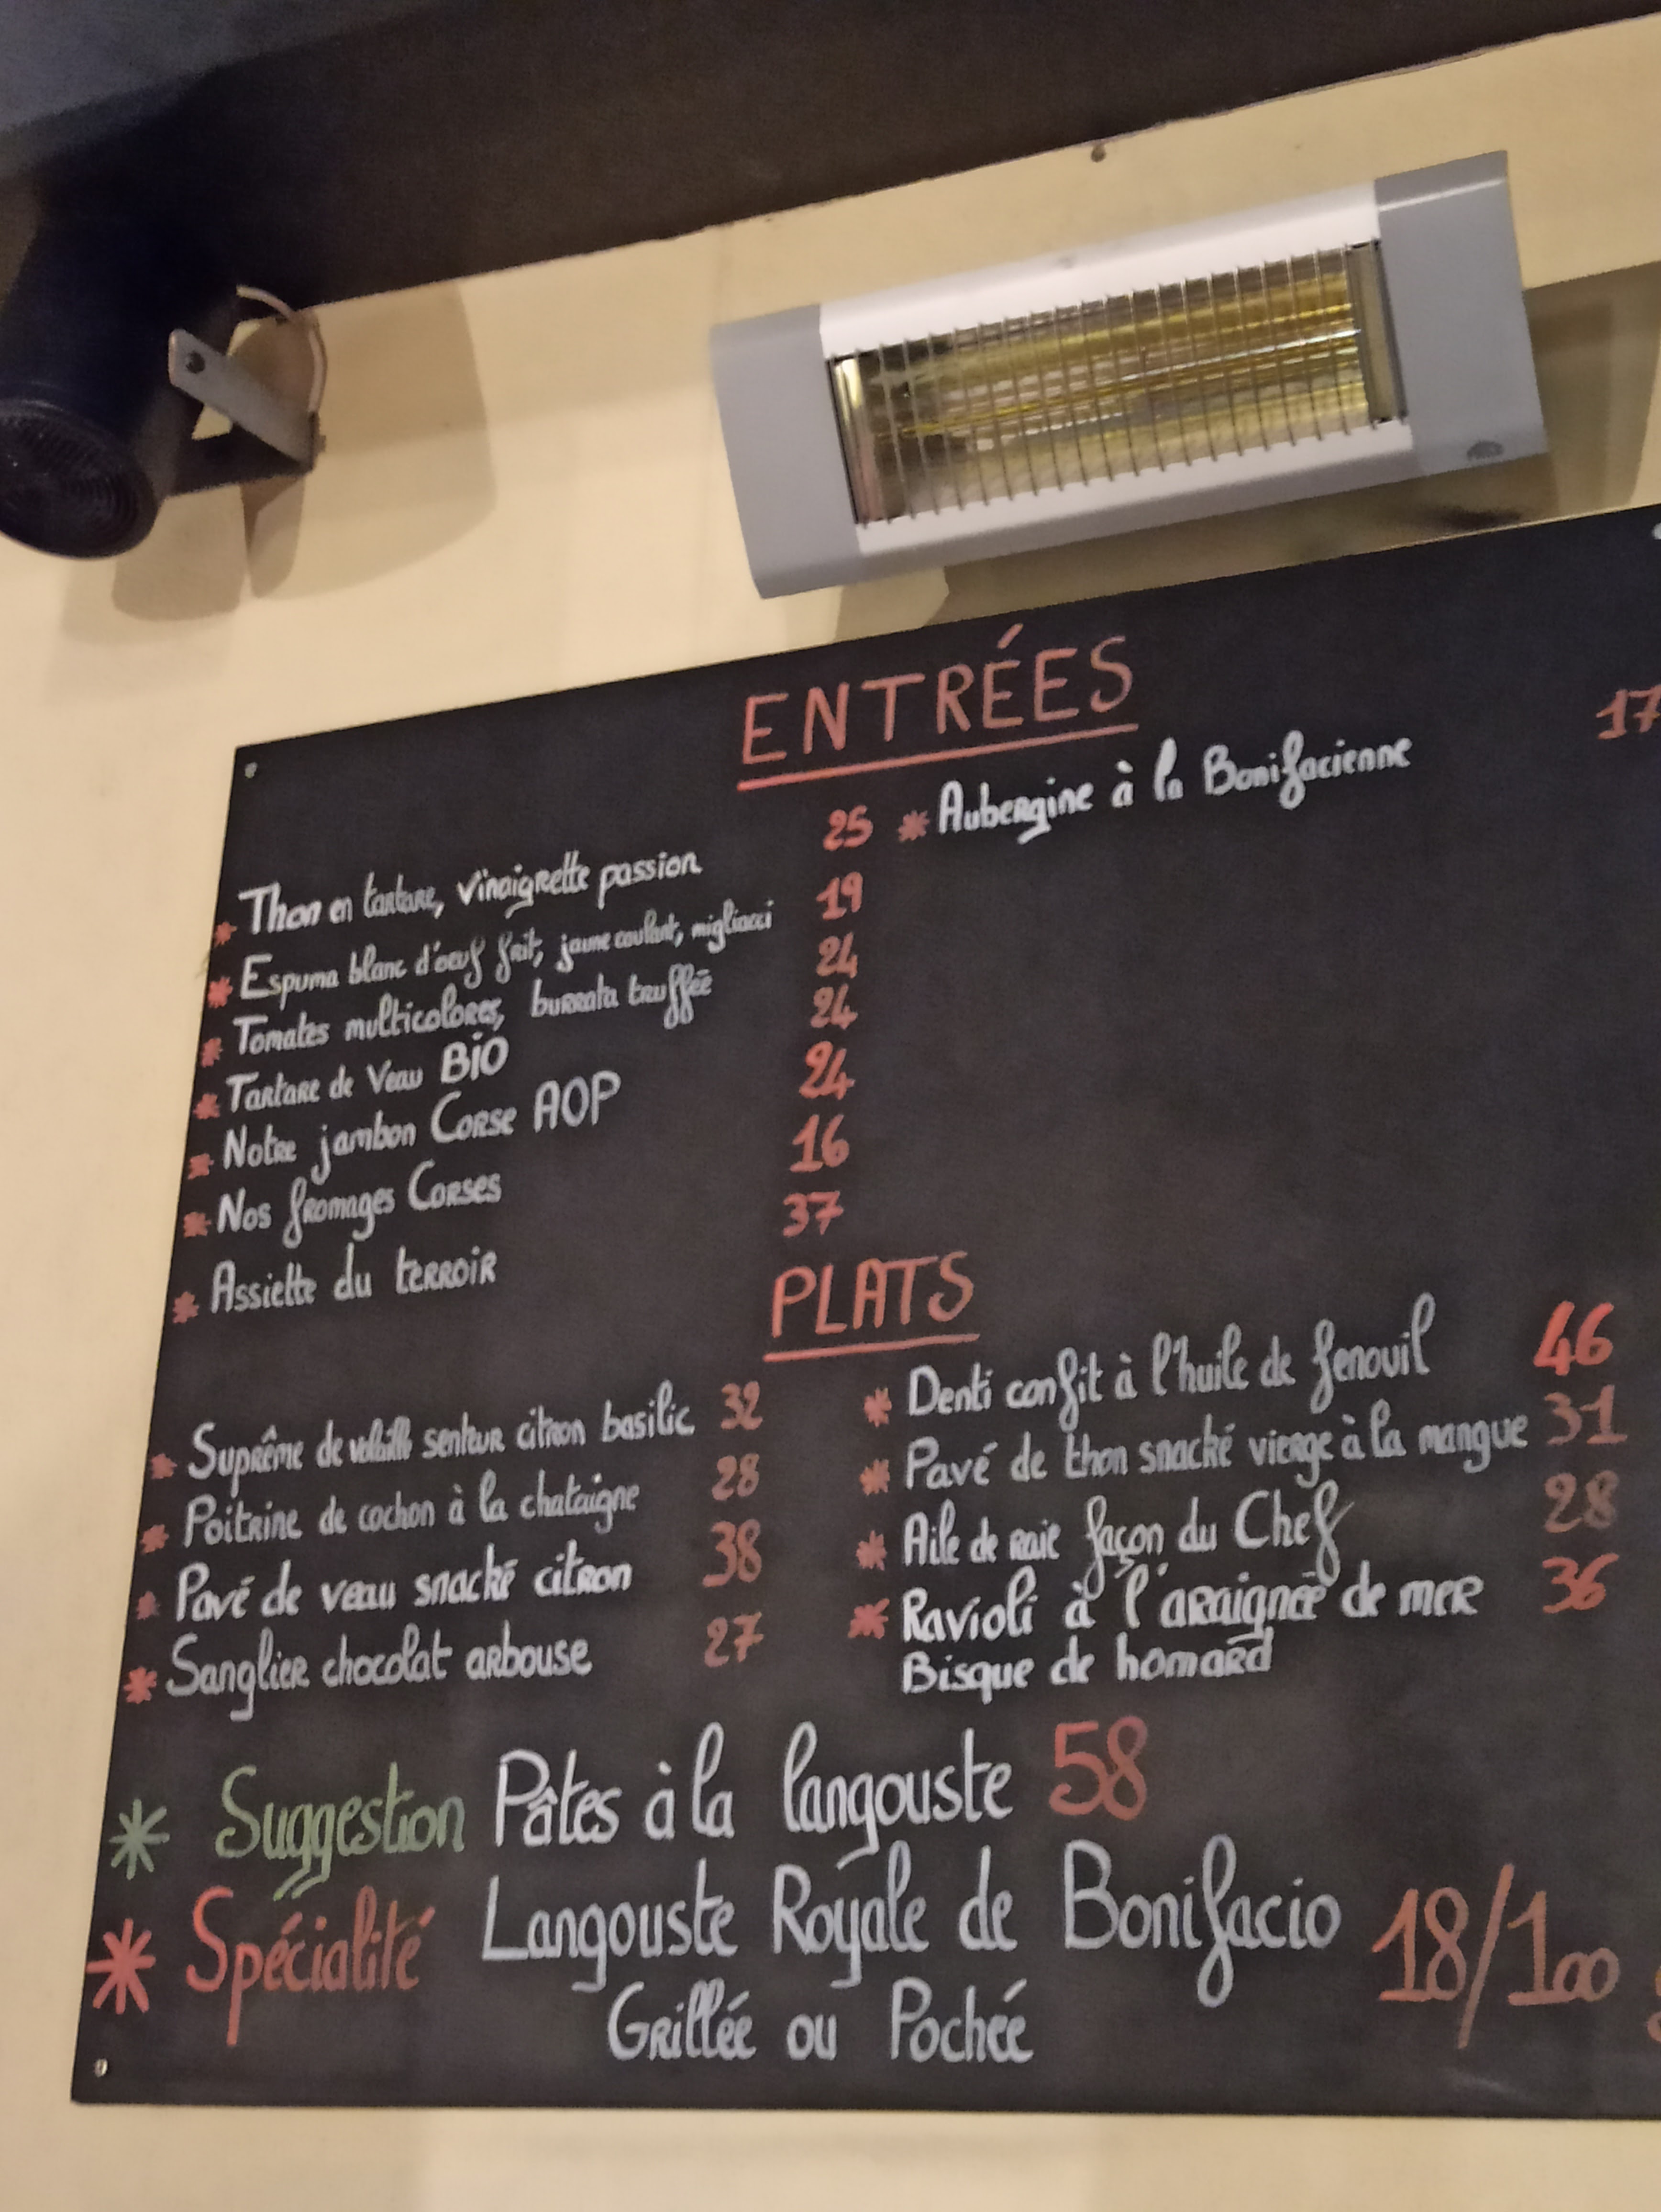 ENTRÉES
* Thon en tartare, vinaigrette passion 25
* Espuma blanc d'oeuf frit, jaune coulant, migliacci 19
* Tomates multicolores, burrata truffée 24
* Tartare de Veau BiO 24
* Notre jambon Corse AOP 24
* Nos fromages Corses 16
* Assiette du terroir 37
* Aubergine à la Bonifacienne 17
PLATS
* Suprême de volaille senteur citron basilic 32
* Poitrine de cochon à la chataigne 28
* Pavé de veau snacké citron 38
* Sanglier chocolat arbouse 27
* Denti confit à l'huile de fenouil 46
* Pavé de thon snacké vierge à la mangue 31
* Aile de raie façon du Chef 28
* Ravioli à l'araignée de mer 36
Bisque de homard
* Suggestion Pâtes à la langouste 58
* Spécialité Langouste Royale de Bonifacio 18/100
Grillée ou Pochée